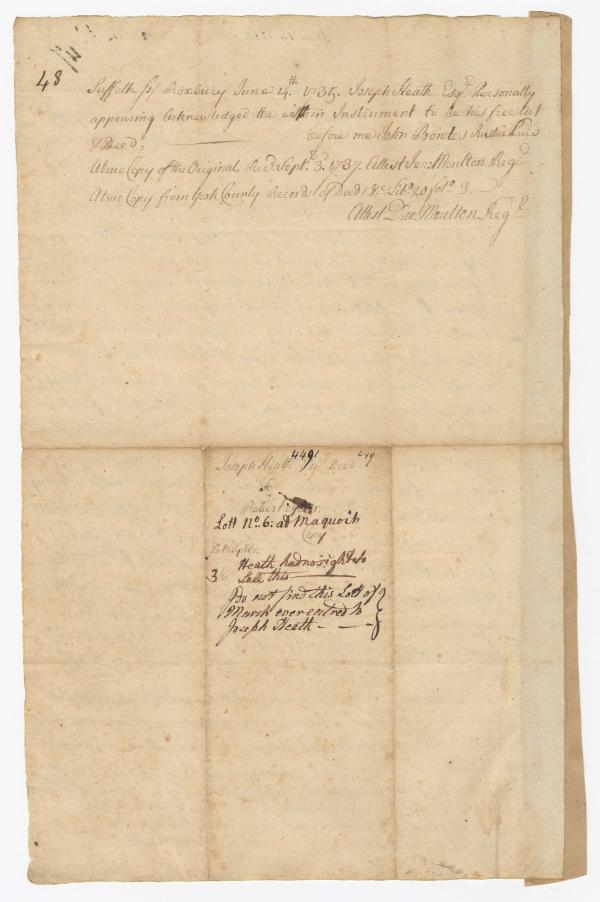 48
Suffolk ss Roxbury June 14th 1735. Joseph Heath Esqr Personally
appearing Acknowledged the within Instrument to be his free act
& Deed,
before me John Bowles Justice Pacis
A true Copy of the Original Recd. Septr. 3d. 1737. Attest Jer: Moulton Regr
A true Copy from York County Records of Deeds &c Libo. 20 folo. 3.
Attest Danl. Moulton Regr.
Joseph Heath Esqr Deed
449
to
Robert
Lott No. 6: at Maquoit
Copy
Heath had no right to
Sell this
3
Do not find this Lott of
Marsh ever entred to
Joseph Heath